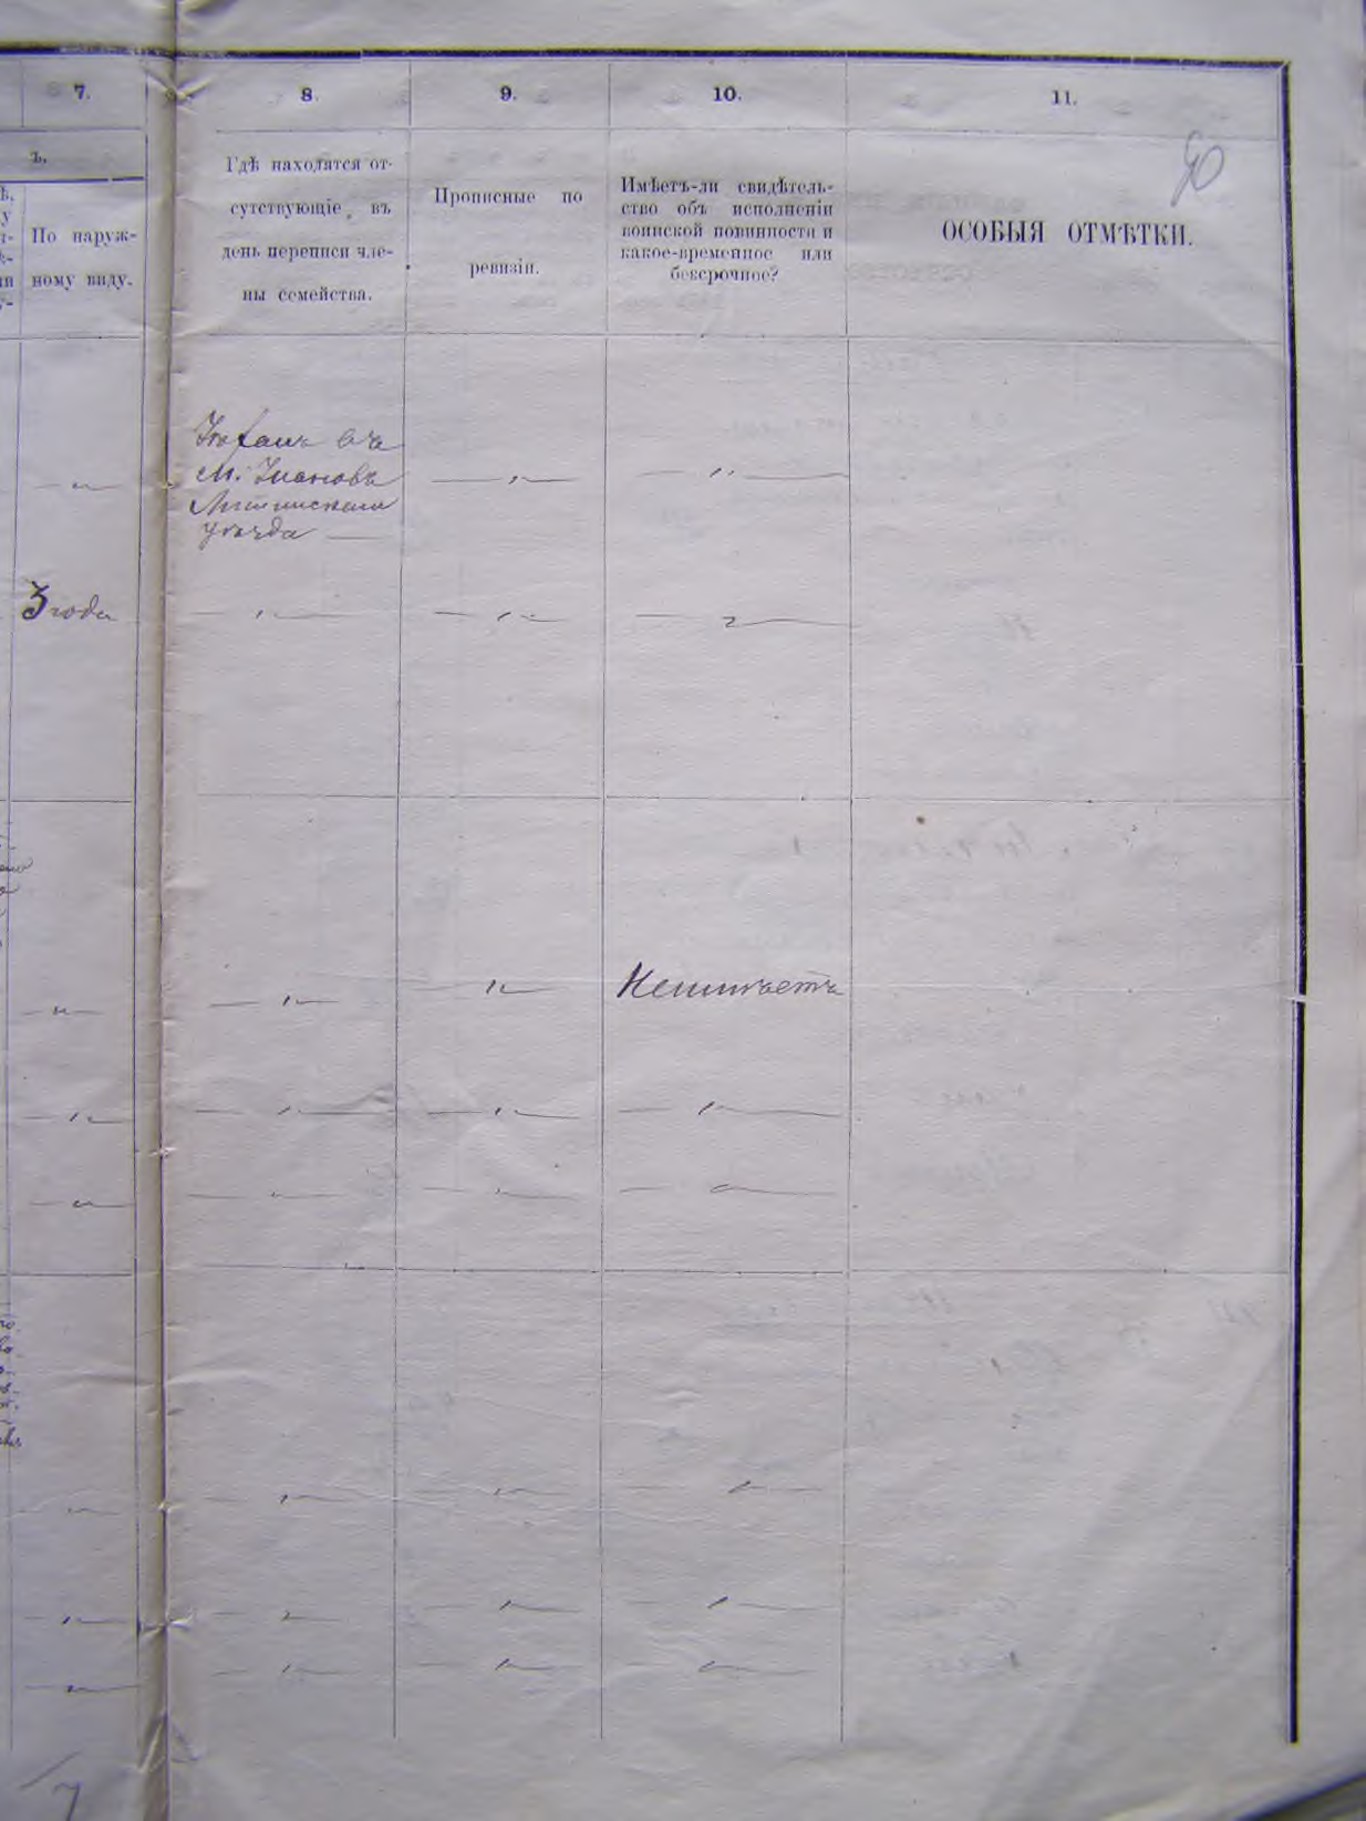 7.
8.
9.
10.
11.
ъ.
По наруж-
ному виду.
Гдѣ находятся от-
сутствующіе, въ
день переписи чле-
ны семейства.
Прописные по
ревизіи.
Имѣетъ-ли свидѣтель-
ство объ исполненіи
воинской повинности и
какое-временное или
безсрочное?
ОСОБЫЯ ОТМѢТКИ.
въ
М. Ивановъ
Литинскаго
уѣзда
3 года
Неимѣетъ